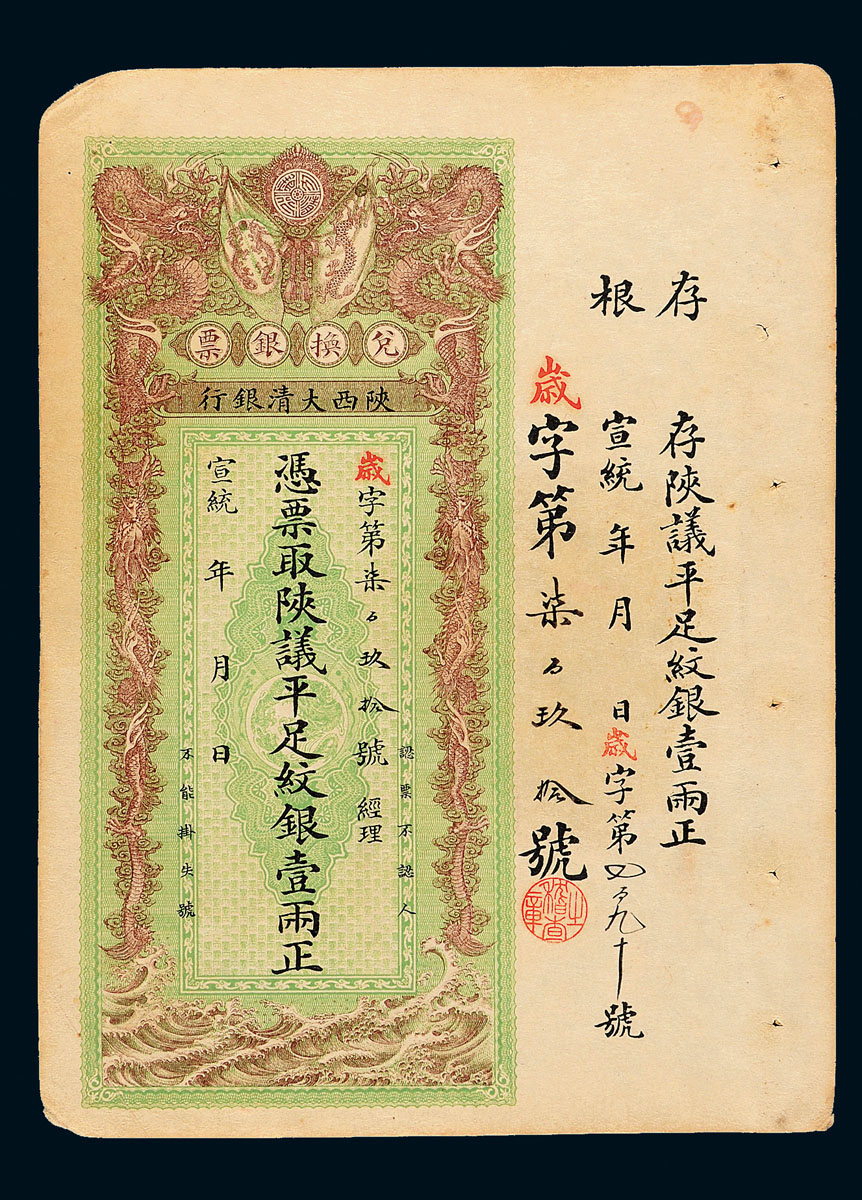 存根
存陝議平足紋銀壹兩正
宣統 年 月 日歲字第 百九十號
歲字第柒百玖拾號
兌換銀票
陝西大清銀行
認票不認人
歲字第柒百玖拾號 經理
憑票取陝議平足紋銀壹兩正
宣統 年 月 日
不能掛失號